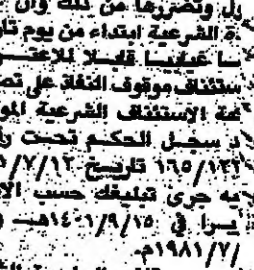 وتضررها من ذلك وان
ة الفرعية ابتداء من يوم تار
غيابيا قابلا للاعتـ
ستئناف موقوف النفاذ على تص
الاستئناف الشرعية المو
سجل الحكم تحت ر
١٦٥/١٣٢ تاريخ ١٢/٧/١
يه جرى تبليغك حسب الا
في ١٤٠١/٩/١٥هـ
/١٩٨١/٧م